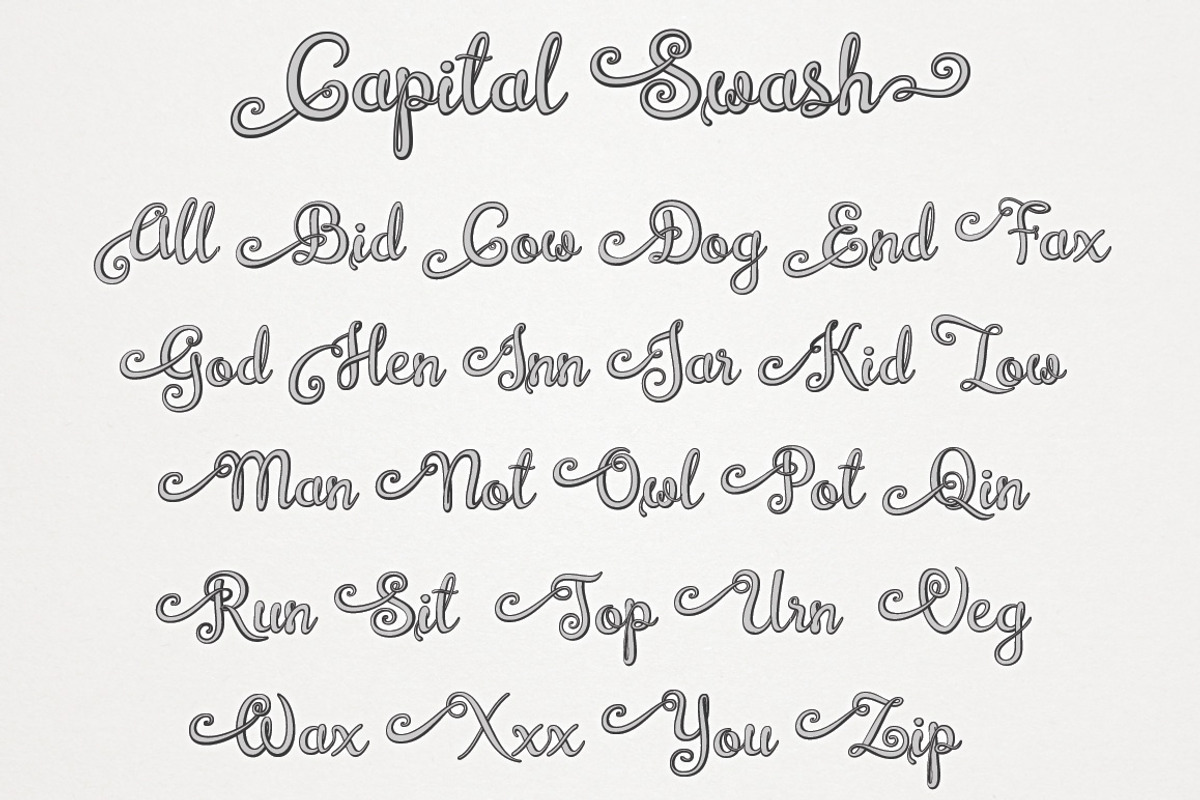 Capital Swash
All Bid Cow Dog End Fax
God Hen Inn Jar Kid Low
Man Not Owl Pot Qin
Run Sit Top Urn Veg
Wax Xxx You Zip